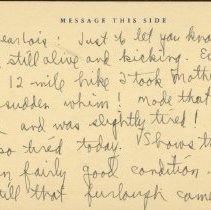 MESSAGE THIS SIDE
ear Lois: Just to let you know
still alive and kicking.
12-mile hike I took
sudden whim! made that
and was slightly tired!
so tired today. Shows
n fairly good condition.
ill that furlough came